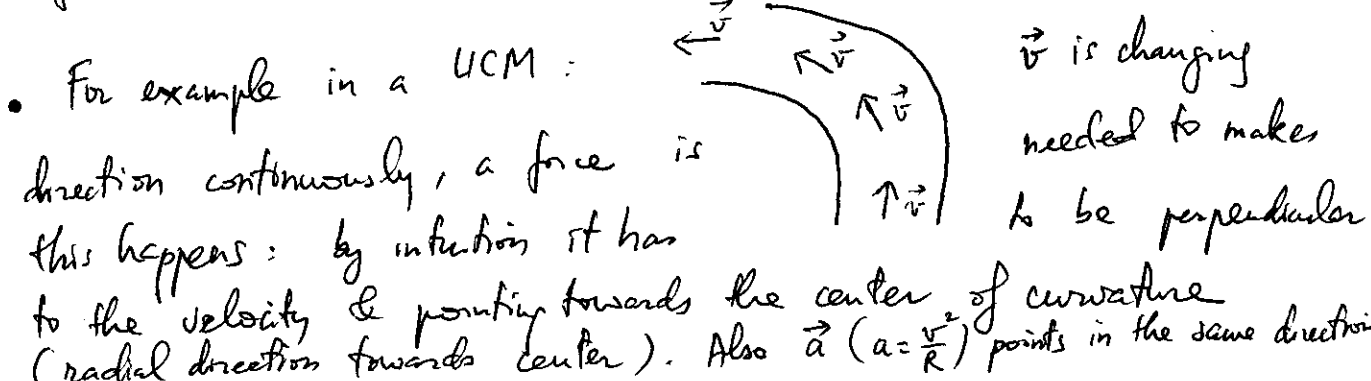 • For example in a UCM : v⃗ v⃗ v⃗ is changing
v⃗
direction continuously, a force is needed to makes
v⃗
this happens : by intuition it has to be perpendicular
to the velocity & pointing towards the center of curvature
(radial direction towards center). Also a⃗ (a = v²/R) points in the same direction